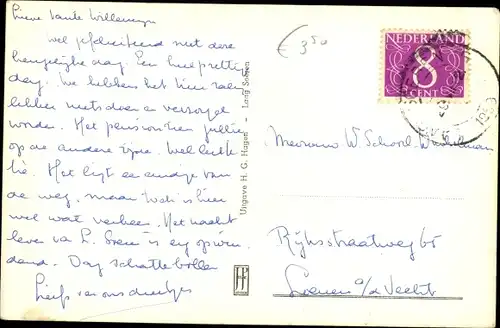 Lieve tante Willemien
wel gefeliciteerd met deze
heugelijke dag. Een heel prettige
dag. We hebben het hier zalig
lekker niets doen en verzorgd
worden. Het pension hier
op de andere zijde. Wel
Het ligt een eindje van
de weg, maar toch is hier
wel wat verkeer. Het nacht
leven in L. Soeren is erg opwin
dend. Dag schattebollen
Liefs van ons drietjes
Uitgave H. G. Hagen - Laag Soeren
€ 3,50
NEDERLAND
8
CENT
Mevrouw W. Schoorl
Rijksstraatweg 65
Loenen a/d Vecht